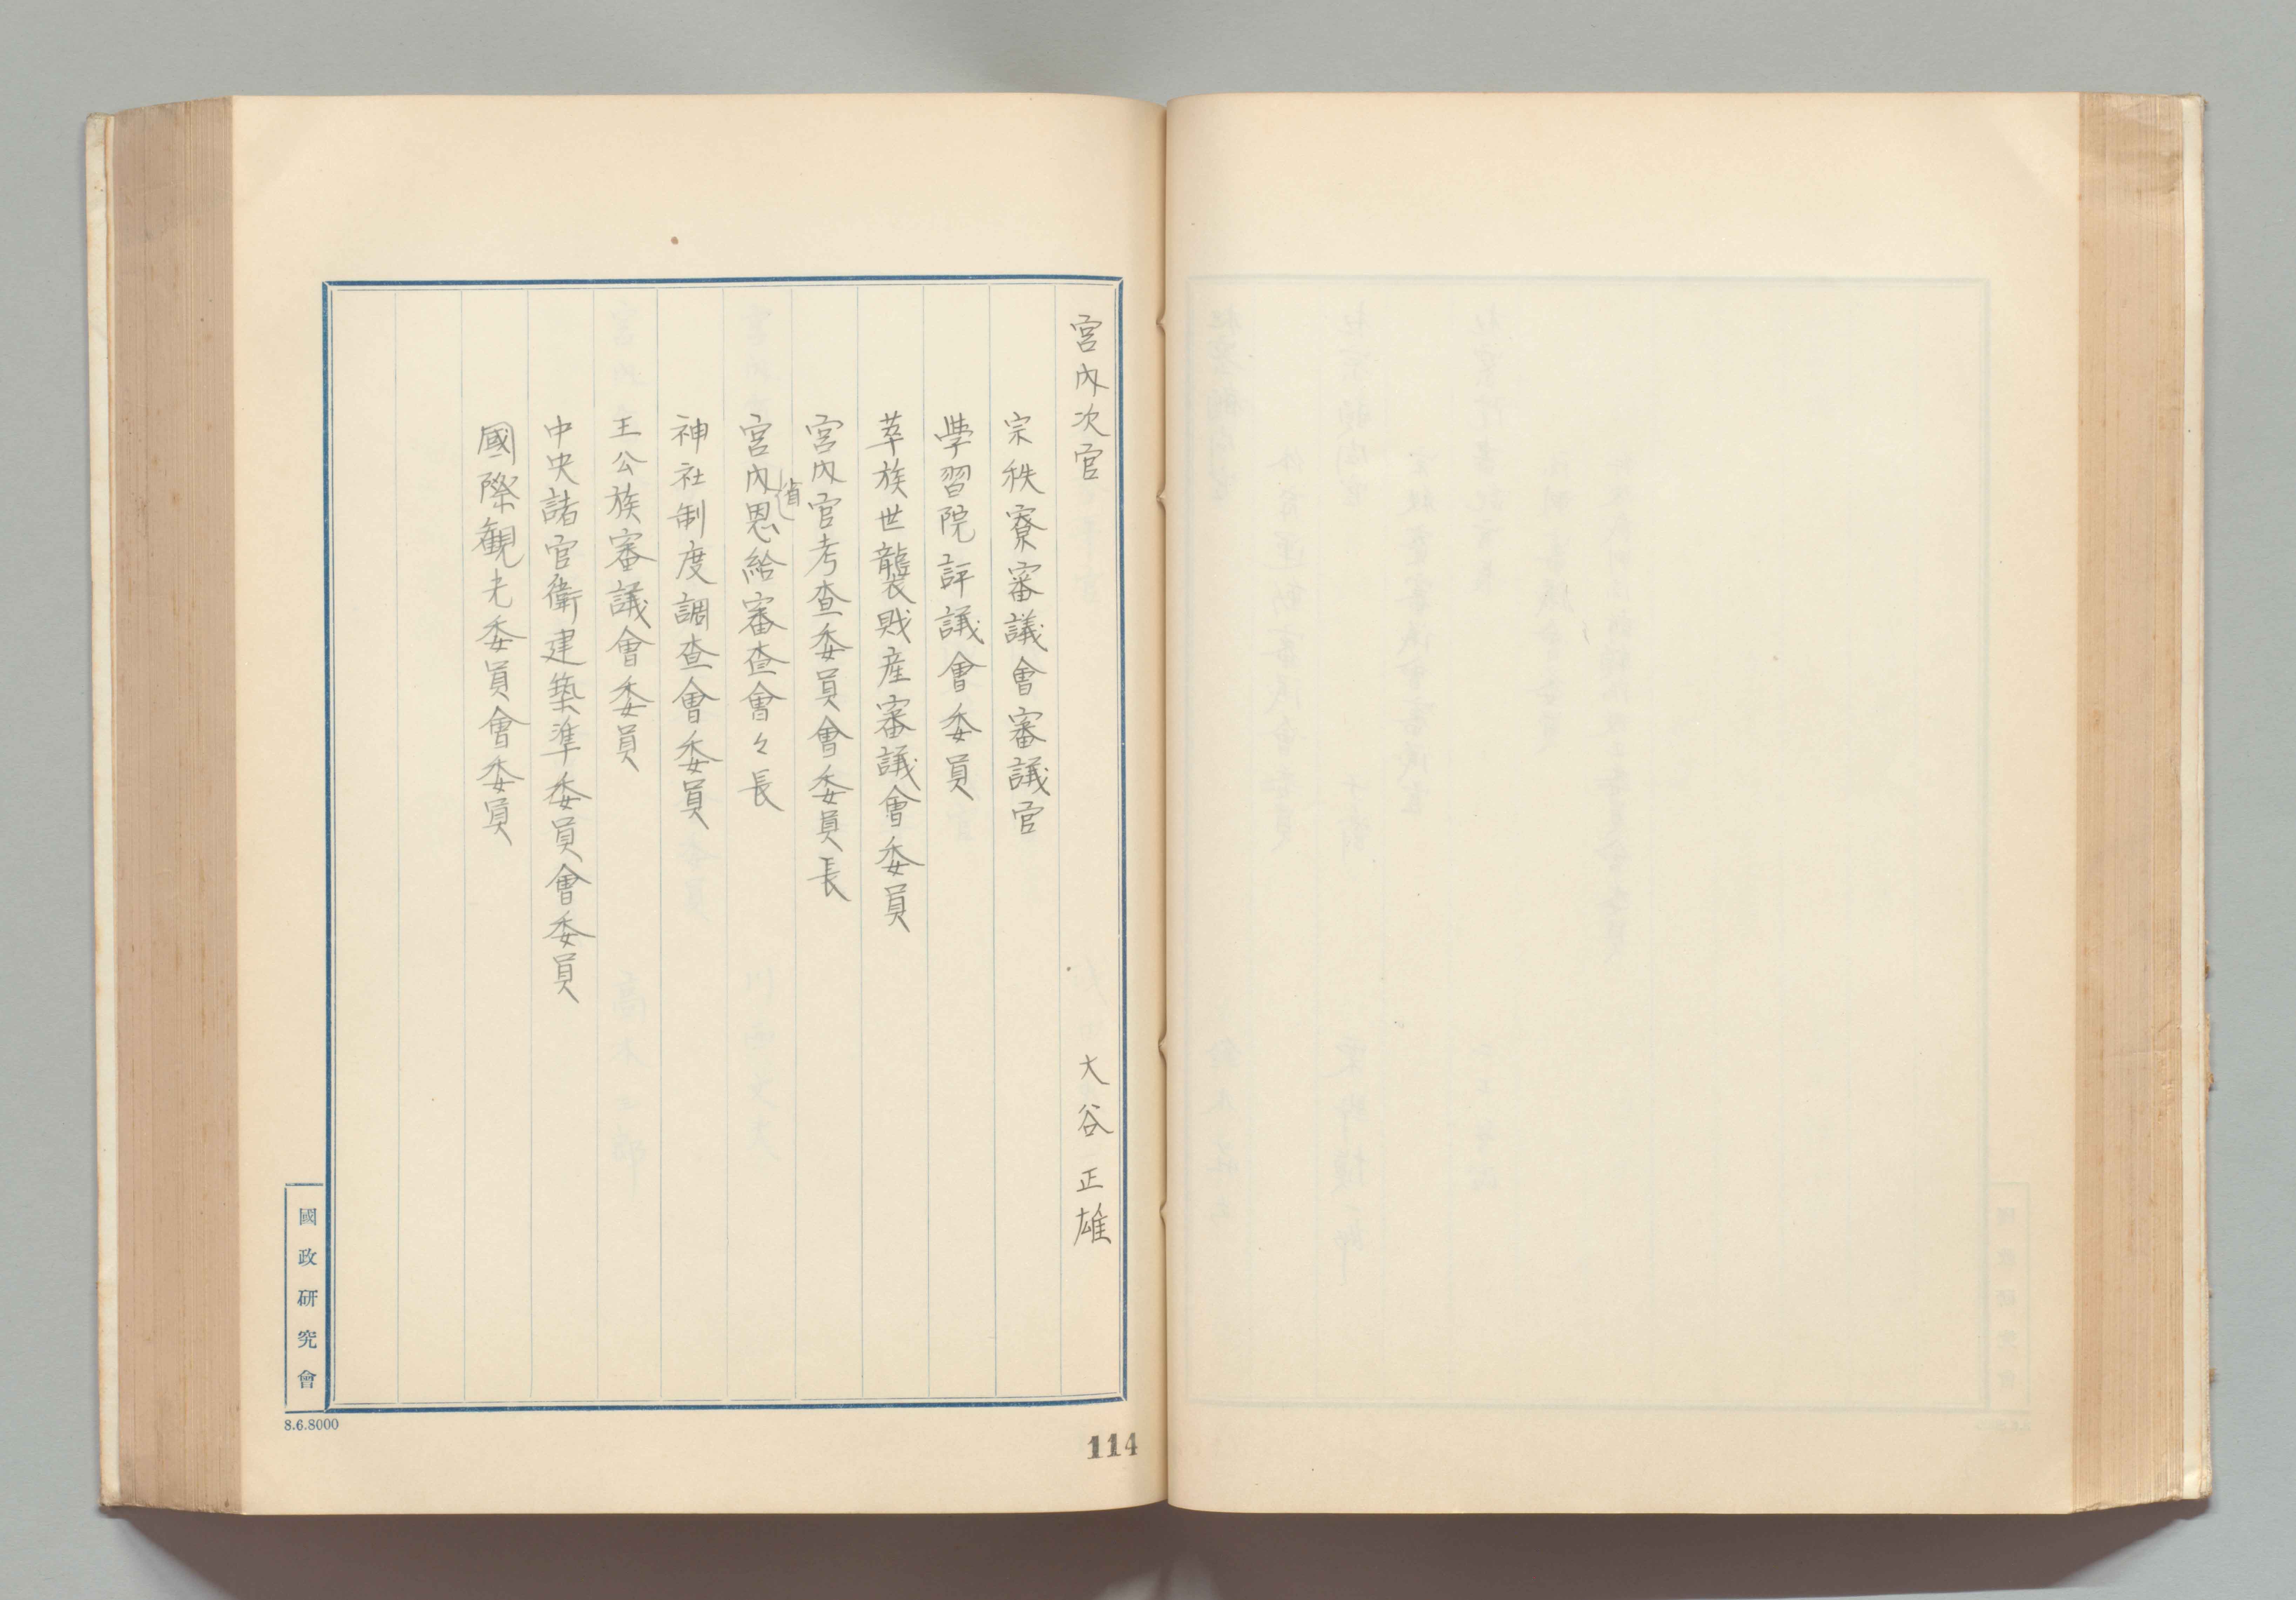 宮内次官 大谷正雄
宗秩寮審議會審議官
學習院評議會委員
華族世襲財産審議會委員
宮内官考査委員會委員長
宮内省恩給審査會々長
神社制度調査會委員
王公族審議會委員
中央諸官衙建築準委員會委員
國際観光委員會委員
國政研究會
8.6.8000
114